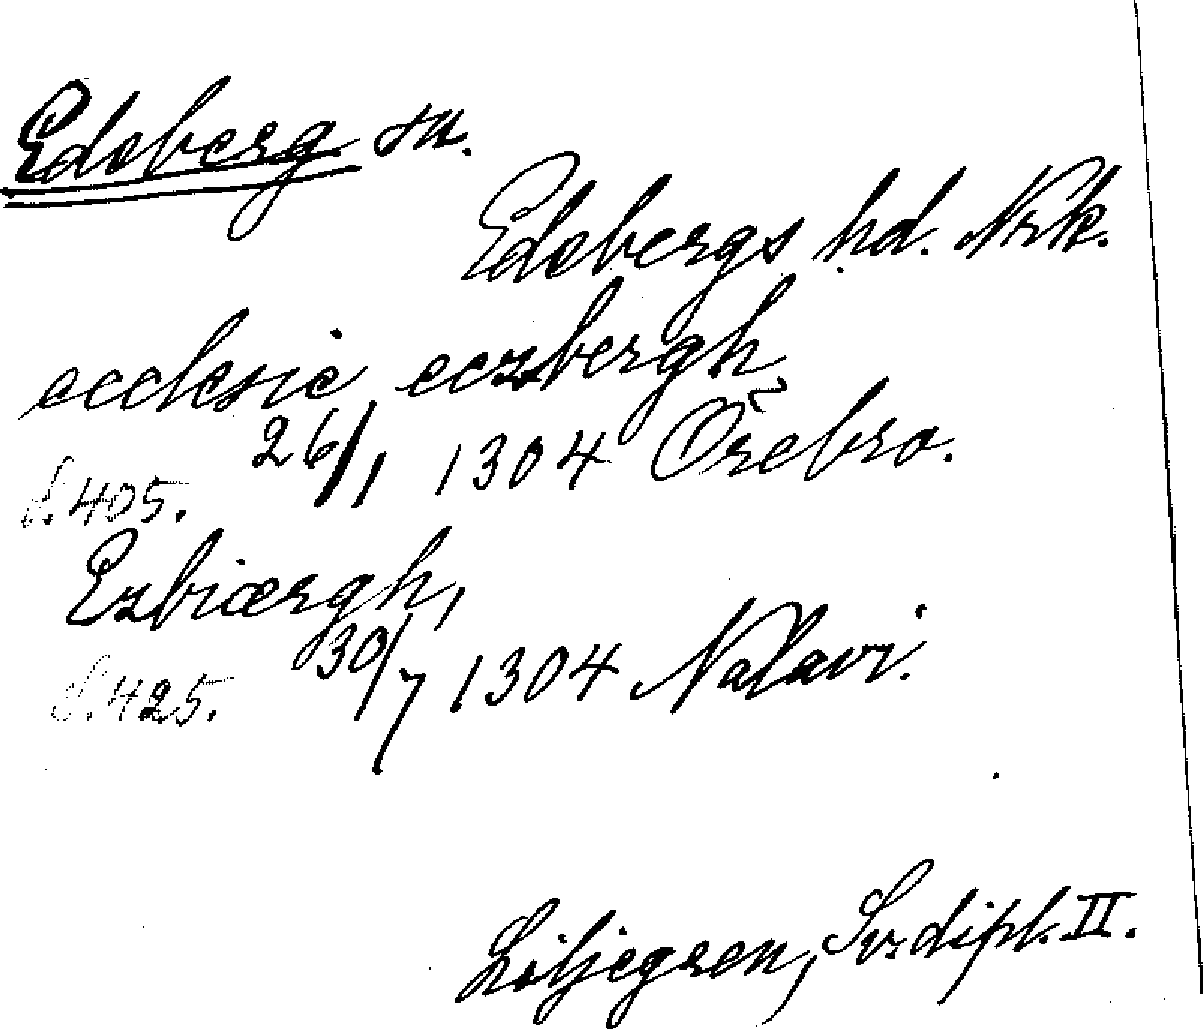 Edeberg sn.
Edebergs hd. Nrk.
ecclesie eczbergh
26/1 1304 Örebro.
S. 405.
Ezbiærgh,
30/7 1304 Nalavi.
S. 425.
Liljegren, Sv. dipl. II.